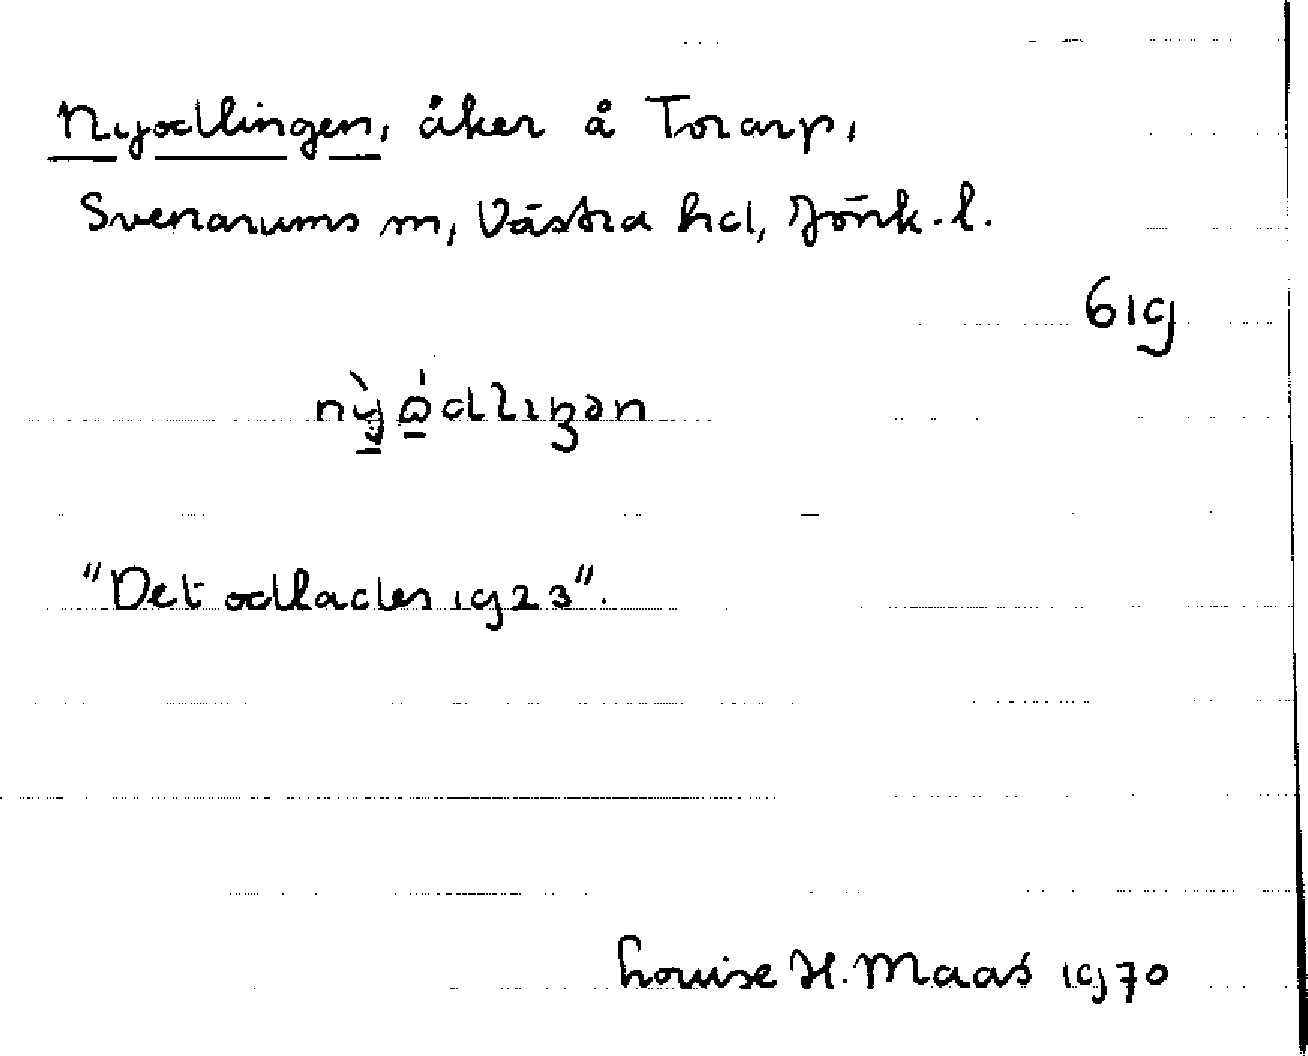 Nyodlingen, åker å Torarp,
Svenarums sn, Västra hd, Jönk. l.
61g
"Det odlades 1923".
Louise H. Maas 1970